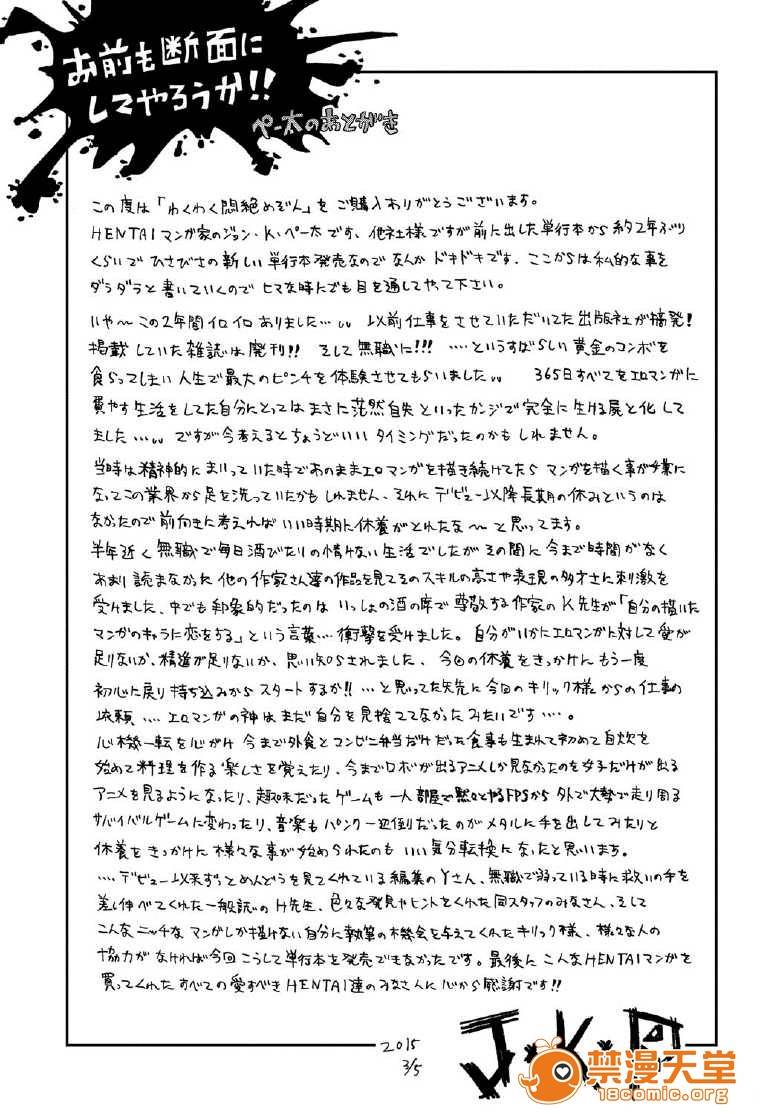 お前も断面に
してやろうか!!
ペー太のあとがき
この度は「わくわく悶絶めぞん」をご購入ありがとうございます。
HENTAIマンガ家のジョン・K・ペー太です、他社様ですが前に出した単行本から約2年ぶり
くらいでひさびさの新しい単行本発売なのでなんかドキドキです。ここからは私的な事を
ダラダラと書いていくのでヒマな時にでも目を通してやって下さい。
いや〜この2年間イロイロありました…。 以前仕事をさせていただいてた出版社が摘発!
掲載していた雑誌は廃刊!! そして無職に!!! ‥‥というすばらしい黄金のコンボを
食らってしまい人生で最大のピンチを体験させてもらいました 365日すべてをエロマンガに
費やす生活をしてた自分にとってはまさに茫然自失といったカンジで完全に生ける屍と化して
ました… ですが今考えるとちょうどいいタイミングだったのかもしれません。
当時は精神的にまいっていた時であのままエロマンガを描き続けてたらマンガを描く事が嫌に
なってこの業界から足を洗っていたかもしれません、それにデビュー以降長期の休みというのは
なかったので前向きに考えればいい時期に休養がとれたな〜と思ってます。
半年近く無職で毎日酒びたりの情けない生活でしたがその間に今まで時間がなく
あまり読まなかった他の作家さん達の作品を見てそのスキルの高さや表現の多才さに刺激を
受けました、中でも印象的だったのはいっしょの酒の席で尊敬する作家のK先生が「自分の描いた
マンガのキャラに恋をする」という言葉…衝撃を受けました。自分がいかにエロマンガに対して愛が
足りないか、精進が足りないか、思い知らされました、今回の休養をきっかけにもう一度
初心に戻り持ち込みからスタートするか!! …と思ってた矢先に今回のキリック様からの仕事の
依頼‥‥エロマンガの神はまだ自分を見捨ててなかったみたいです‥‥。
心機一転を心がけ今まで外食とコンビニ弁当だけだった食事も生まれて初めて自炊を
始めて料理を作る楽しさを覚えたり、今までロボが出るアニメしか見なかったのを女子だけが出る
アニメを見るようになったり、趣味だったゲームも一人部屋で黙々とやるFPSから外で大勢で走り周る
サバイバルゲームに変わったり、音楽もパンク一辺倒だったのがメタルに手を出してみたりと
休養をきっかけに様々な事が始められたのもいい気分転換になったと思います。
‥‥デビュー以来ずっとめんどうを見てくれている編集のYさん、無職で弱っている時に救いの手を
差し伸べてくれた一般誌のH先生、色々な発見やヒントをくれた同スタッフのみなさん、そして
こんなニッチなマンガしか描けない自分に執筆の機会を与えてくれたキリック様、様々な人の
協力がなければ今回こうして単行本を発売できなかったです。最後にこんなHENTAIマンガを
買ってくれたすべての愛すべきHENTAI達のみなさんに心から感謝です!!
2015
3/5
J・K・P
禁漫天堂
18comic.org